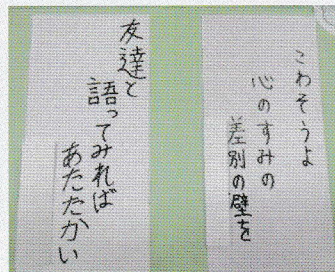 こわそうよ
心のすみの
差別の壁を
友達と
語ってみれば
あたたかい